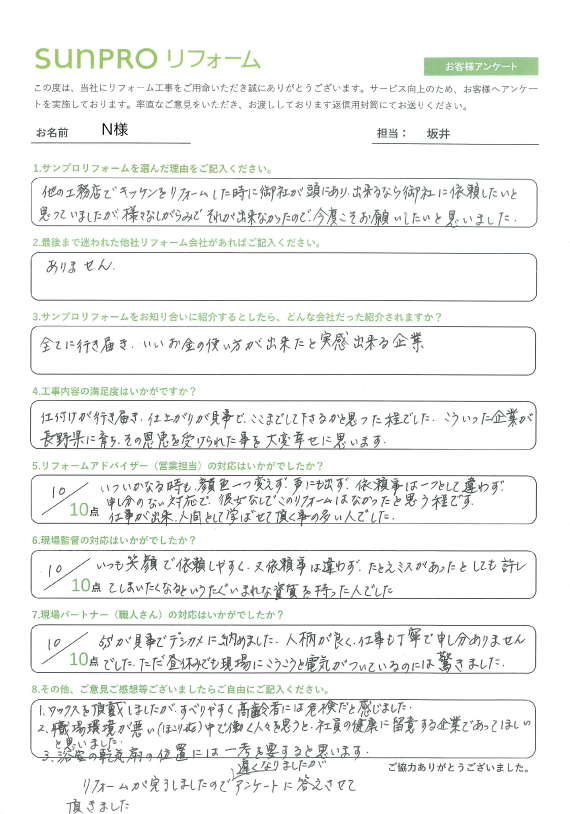 SUNPRO リフォーム
お客様アンケート
この度は、当社にリフォーム工事をご用命いただき誠にありがとうございます。サービス向上のため、お客様へアンケー
トを実施しております。率直なご意見をいただき、お渡ししております返信用封筒にてお送りください。
お名前 N様 担当： 坂井
1.サンプロリフォームを選んだ理由をご記入ください。
他の工務店でキッチンをリフォームした時に御社が頭にあり、出来るなら御社に依頼したいと
思っていましたが、様々なしがらみでそれが出来なかったので、今度こそお願いしたいと思いました。
2.最後まで迷われた他社リフォーム会社があればご記入ください。
ありません。
3.サンプロリフォームをお知り合いに紹介するとしたら、どんな会社だった紹介されますか？
全てに行き届き、いいお金の使い方が出来たと実感出来る企業
4.工事内容の満足度はいかがですか？
仕付けが行き届き、仕上がりが見事で、ここまでして下さるかと思った程でした。こういった企業が
長野県に育ち、その恩恵を受けられた事を大変幸せに思います。
5.リフォームアドバイザー（営業担当）の対応はいかがでしたか？
10／10点
いついかなる時も、顔色一つ変えず、声にも出ず、依頼事は一つとして違わず、
申し分のない対応で、彼女なしでこのリフォームはなかったと思う程です。
仕事が出来、人間として学ばせて頂く事の多い人でした。
6.現場監督の対応はいかがでしたか？
10／10点
いつも笑顔で依頼しやすく、又依頼事は違わず、たとえミスがあったとしても許し
てしまいたくなるというたぐいまれな資質を持った人でした
7.現場パートナー（職人さん）の対応はいかがでしたか？
10／10点
5Sが見事でデジカメに納めました。人柄が良く、仕事も丁寧で申し分ありません
でした。ただ昼休みでも現場にこうこうと電気がついているのには驚きました。
8.その他、ご意見ご感想等ございましたらご自由にご記入ください。
1.ワックスを頂戴しましたが、すべりやすく高齢者には危険だと感じました。
2.職場環境が悪い(ほこり等)中で働く人々を思うと、社員の健康に留意する企業であってほしい
と思いました。
3.浴室の乾燥扇の位置には一考を要すると思います。
ご協力ありがとうございました。
遅くなりましたが
リフォームが完了しましたのでアンケートに答えさせて
頂きました